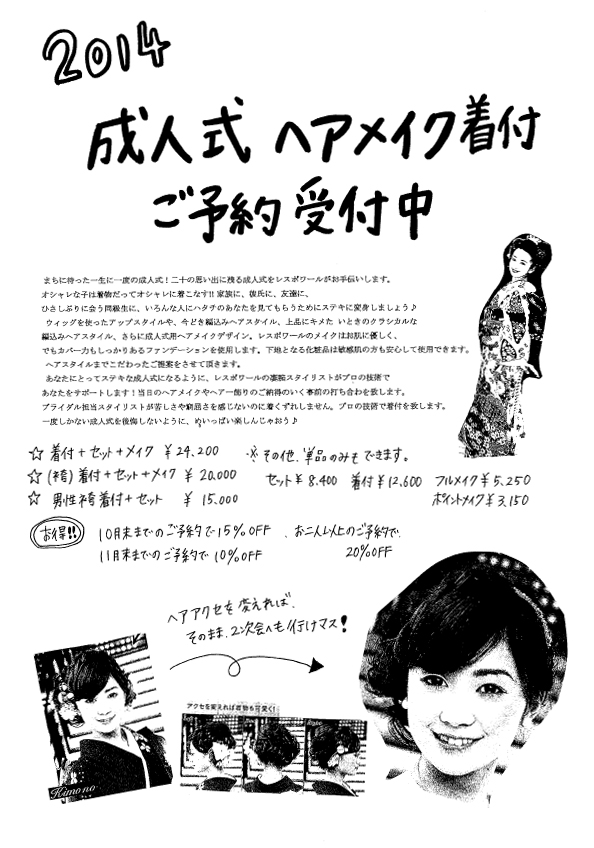 2014
成人式 ヘアメイク着付
ご予約 受付中
まちに待った一生に一度の成人式！二十の思い出に残る成人式をレスポワールがお手伝いします。
オシャレな子は着物だってオシャレに着こなす!! 家族に、彼氏に、友達に、
ひさしぶりに会う同級生に、いろんな人にハタチのあなたを見てもらうためにステキに変身しましょう♪
ウィッグを使ったアップスタイルや、今どき編込みヘアスタイル、上品にキメた いときのクラシカルな
編込みヘアスタイル、さらに成人式用ヘアメイクデザイン。レスポワールのメイクはお肌に優しく、
でもカバー力もしっかりあるファンデーションを使用します。下地となる化粧品は敏感肌の方も安心して使用できます。
ヘアスタイルまでこだわったご提案をさせて頂きます。
あなたにとってステキな成人式になるように、レスポワールの凄腕スタイリストがプロの技術で
あなたをサポートします！当日のヘアメイクやヘアー飾りのご納得のいく事前の打ち合わせを致します。
ブライダル担当スタイリストが苦しさや窮屈さを感じないのに着くずれしません。プロの技術で着付を致します。
一度しかない成人式を後悔しないように、めいっぱい楽しんじゃおう♪
☆ 着付＋セット＋メイク ￥24,200
※その他、単品のみもできます。
☆ (袴) 着付＋セット＋メイク ￥20,000
セット￥8,400 着付￥12,600 フルメイク￥5,250
☆ 男性袴着付＋セット ￥15,000
ポイントメイク￥3,150
お得!!
10月末までのご予約で15%OFF
お二人以上のご予約で
11月末までのご予約で10%OFF
20%OFF
ヘアアクセを変えれば、
そのまま、2次会へも行けマス！
アクセを変えれば着物も可愛く！
Kimono